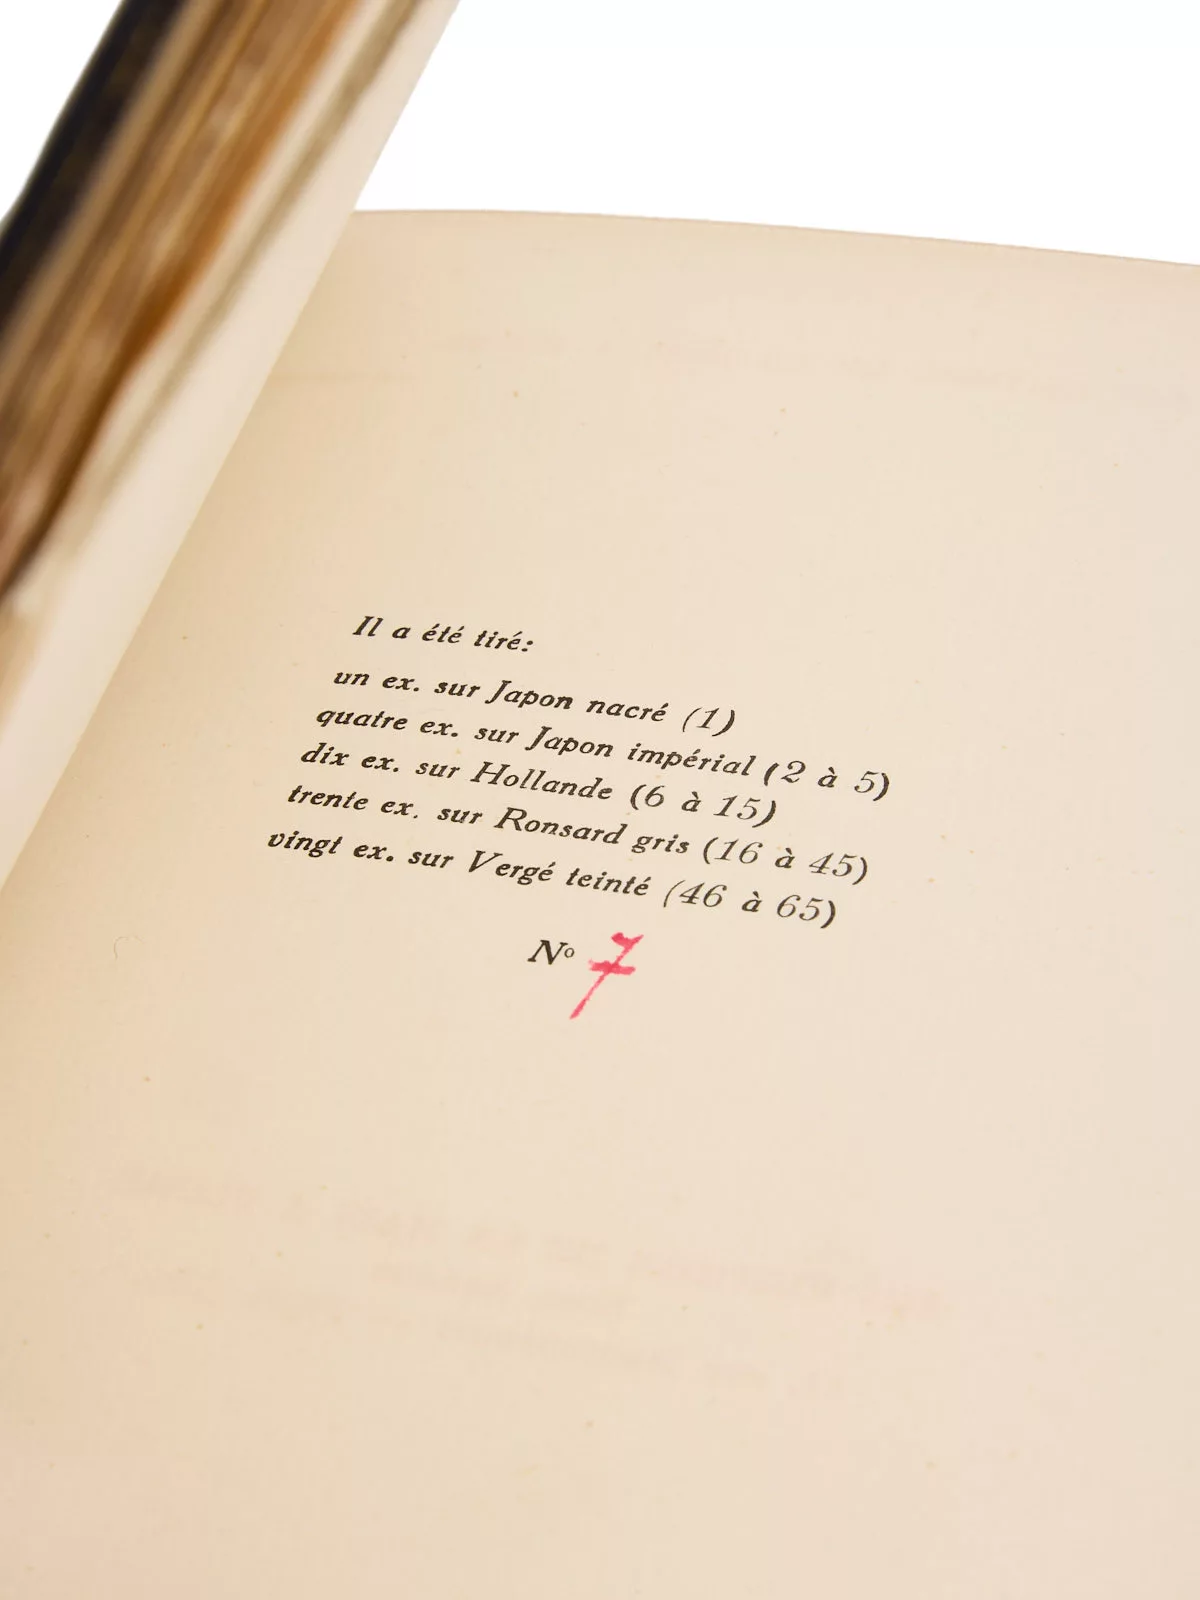 Il a été tiré:
un ex. sur Japon nacré (1)
quatre ex. sur Japon impérial (2 à 5)
dix ex. sur Hollande (6 à 15)
trente ex. sur Ronsard gris (16 à 45)
vingt ex. sur Vergé teinté (46 à 65)
Nº 7